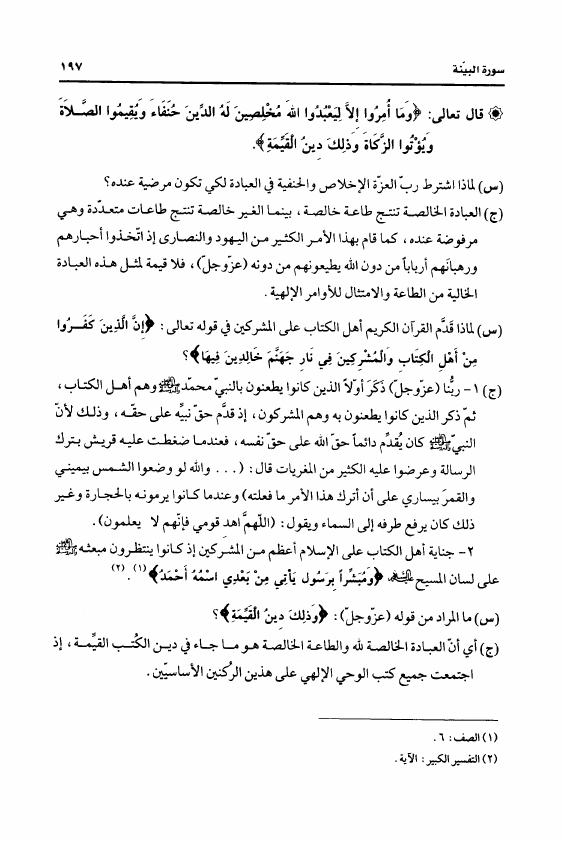 سورة البيّنة ١٩٧
قال تعالى: ﴿وَمَا أُمِرُوا إِلاَّ لِيَعْبُدُوا اللهَ مُخْلِصِينَ لَهُ الدِّينَ حُنَفَاءَ وَيُقِيمُوا الصَّلاَةَ
وَيُؤْتُوا الزَّكَاةَ وَذَلِكَ دِينُ الْقَيِّمَةِ﴾.
(س) لماذا اشترط ربّ العزّة الإخلاص والحنفية في العبادة لكي تكون مرضية عنده؟
(ج) العبادة الخالصة تنتج طاعة خالصة، بينما الغير خالصة تنتج طاعات متعدّدة وهي
مرفوضة عنده، كما قام بهذا الأمر الكثير من اليهود والنصارى إذ اتّخذوا أحبارهم
ورهبانهم أرباباً من دون الله يطيعونهم من دونه (عزّوجلّ)، فلا قيمة لمثل هذه العبادة
الخالية من الطاعة والامتثال للأوامر الإلهية.
(س) لماذا قَدَّم القرآن الكريم أهل الكتاب على المشركين في قوله تعالى: ﴿إِنَّ الَّذِينَ كَفَرُوا
مِنْ أَهْلِ الْكِتَابِ وَالْمُشْرِكِينَ فِي نَارِ جَهَنَّمَ خَالِدِينَ فِيهَا﴾؟
(ج) ١- ربُّنا (عزّوجلّ) ذَكَرَ أوّلاً الذين كانوا يطعنون بالنبيّ محمّد ﷺ وهم أهل الكتاب،
ثمّ ذكر الذين كانوا يطعنون به وهم المشركون، إذ قدَّم حقّ نبيِّه على حقّه، وذلك لأنّ
النبيّ ﷺ كان يُقدِّم دائماً حقّ الله على حقّ نفسه، فعندما ضغطت عليه قريش بترك
الرسالة وعرضوا عليه الكثير من المغريات قال: (... والله لو وضعوا الشمس بيميني
والقمرَ بيساري على أن أترك هذا الأمر ما فعلته) وعندما كانوا يرمونه بالحجارة وغير
ذلك كان يرفع طرفه إلى السماء ويقول: (اللهمَّ اهد قومي فإنّهم لا يعلمون).
٢- جناية أهل الكتاب على الإسلام أعظم من المشركين إذ كانوا ينتظرون مبعثه ﷺ
على لسان المسيح ﴿وَمُبَشِّراً بِرَسُولٍ يَأْتِي مِنْ بَعْدِي اسْمُهُ أَحْمَدُ﴾(١).(٢)
(س) ما المراد من قوله (عزّوجلّ): ﴿وَذَلِكَ دِينُ الْقَيِّمَةِ﴾؟
(ج) أي أنّ العبادة الخالصة لله والطاعة الخالصة هو ما جاء في دين الكُتب القيِّمة، إذ
اجتمعت جميع كتب الوحي الإلهي على هذين الرُكنين الأساسيّين.
(١) الصف: ٦.
(٢) التفسير الكبير: الآية.